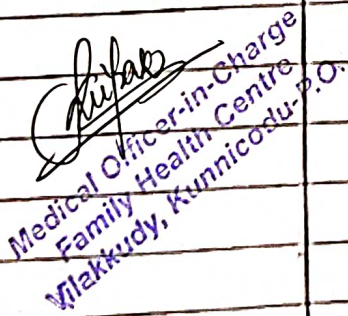 Medical Officer-in-Charge
Family Health Centre
Vilakkudy, Kunnicodu-P.O.